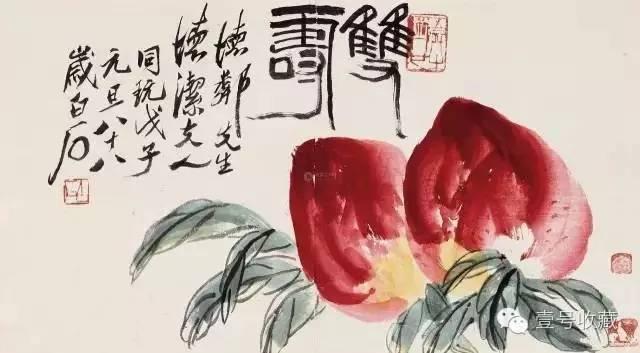 雙壽
德鄰先生
德潔夫人
同玩戊子
元旦八十八
歲白石
壹号收藏